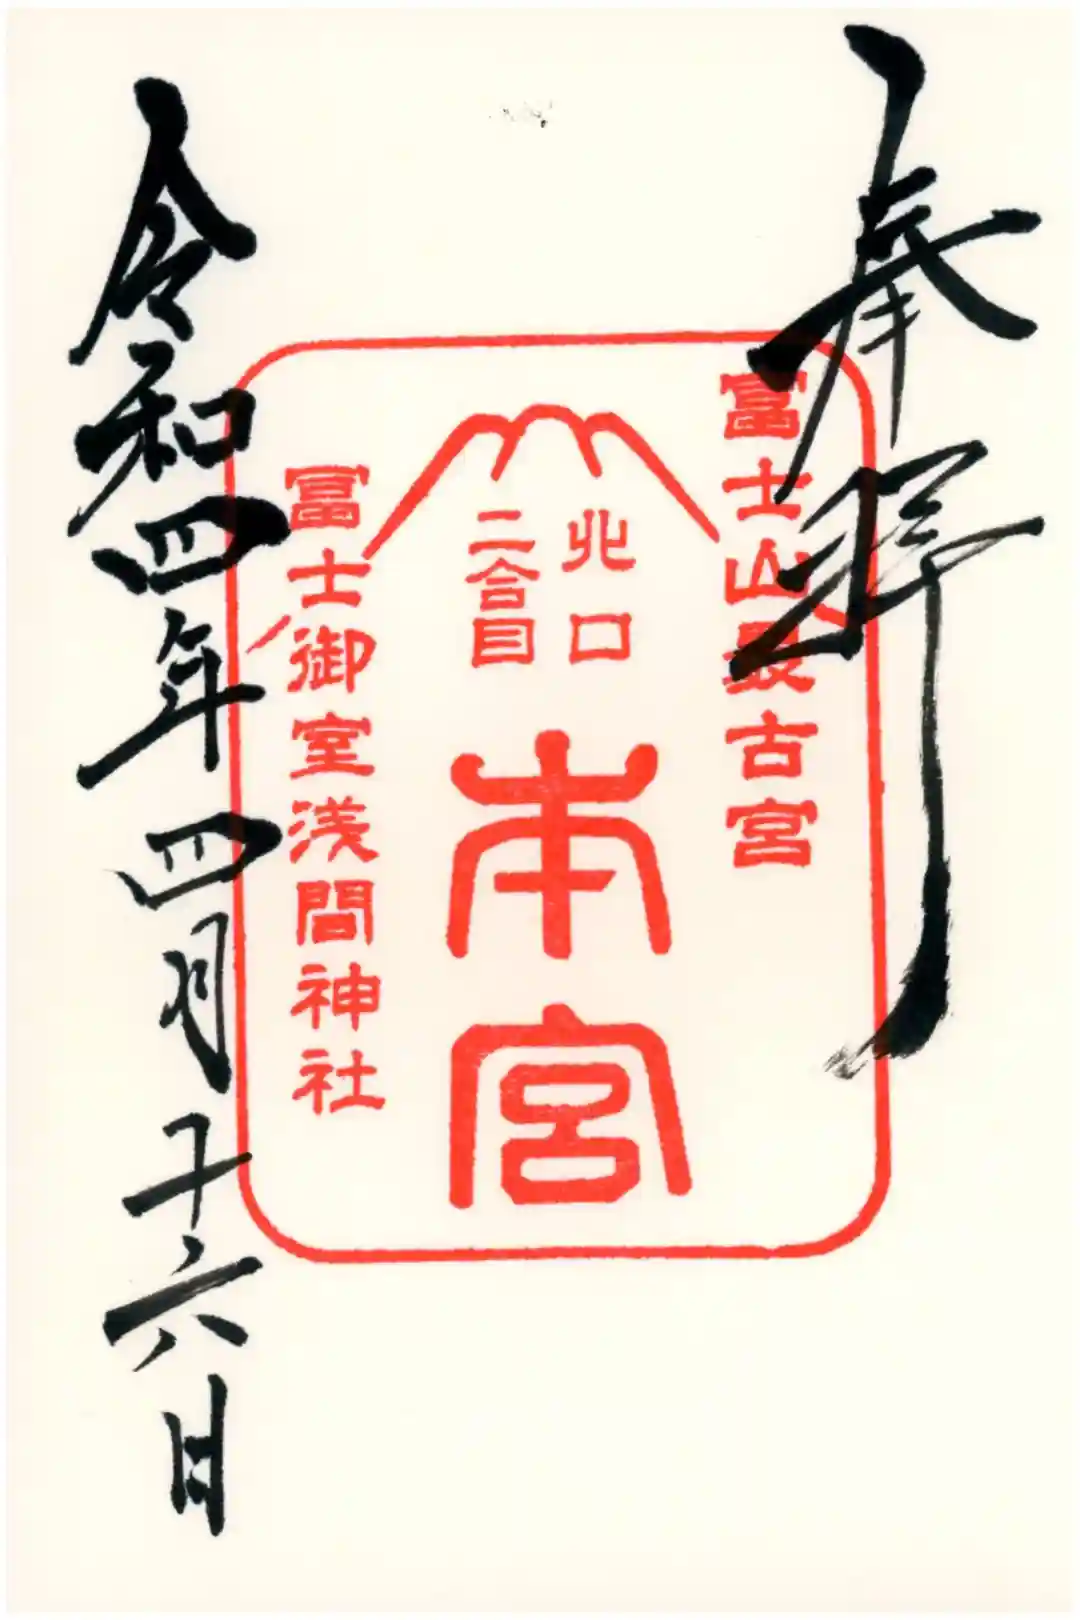 奉拝
冨士山最古宮
北口
二合目
本宮
冨士御室浅間神社
令和四年四月十六日